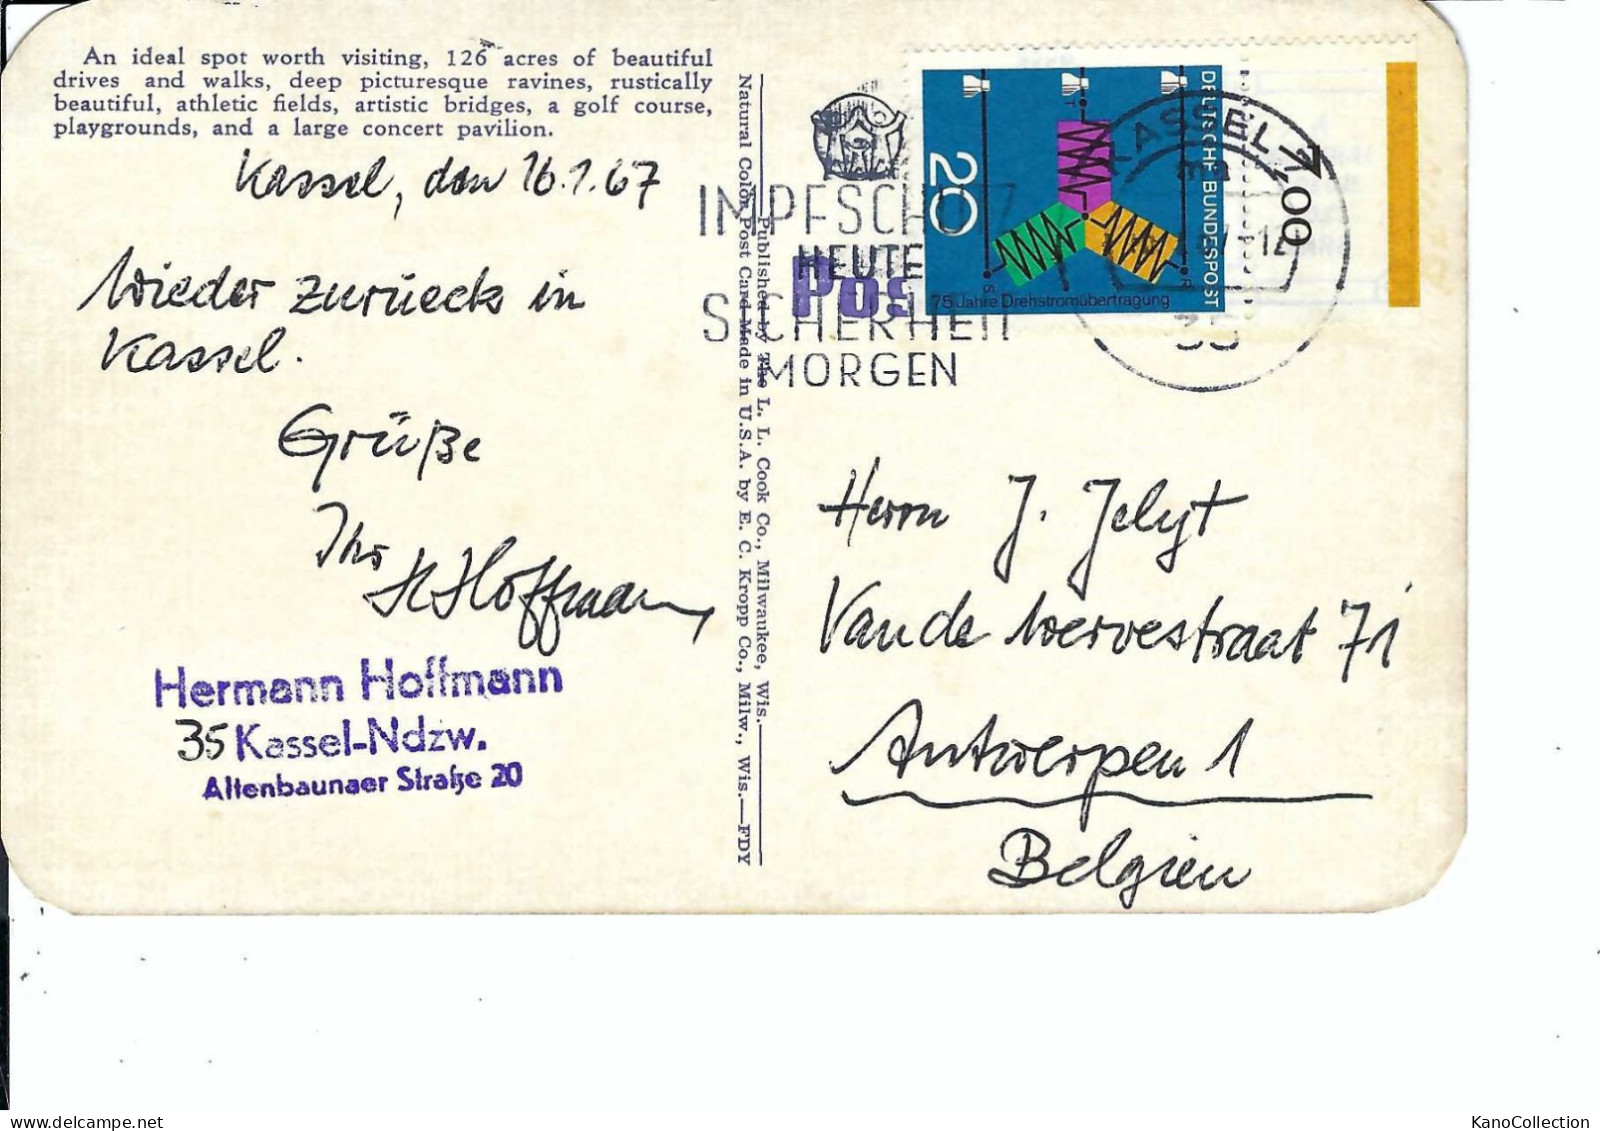 An ideal spot worth visiting, 126 acres of beautiful
drives and walks, deep picturesque ravines, rustically
beautiful, athletic fields, artistic bridges, a golf course,
playgrounds, and a large concert pavilion.
Kassel, den 16.1.67
Wieder zurück in
Kassel.
Grüße
Ihr
H Hoffmann
Hermann Hoffmann
35 Kassel-Ndzw.
Altenbaunaer Straße 20
Published by The L. L. Cook Co., Milwaukee, Wis.
Natural Color Post Card Made in U.S.A. by E. C. Kropp Co., Milw., Wis.—FDY
IMPFSCHUTZ
HEUTE
SICHERHEIT
MORGEN
Pos
20
75 Jahre Drehstromübertragung
DEUTSCHE BUNDESPOST
T
S
R
KASSEL 7
ma
12
35
7,00
Herrn J. Jelyt
Van de Wervestraat 71
Antwerpen 1
Belgien
KanoCollection